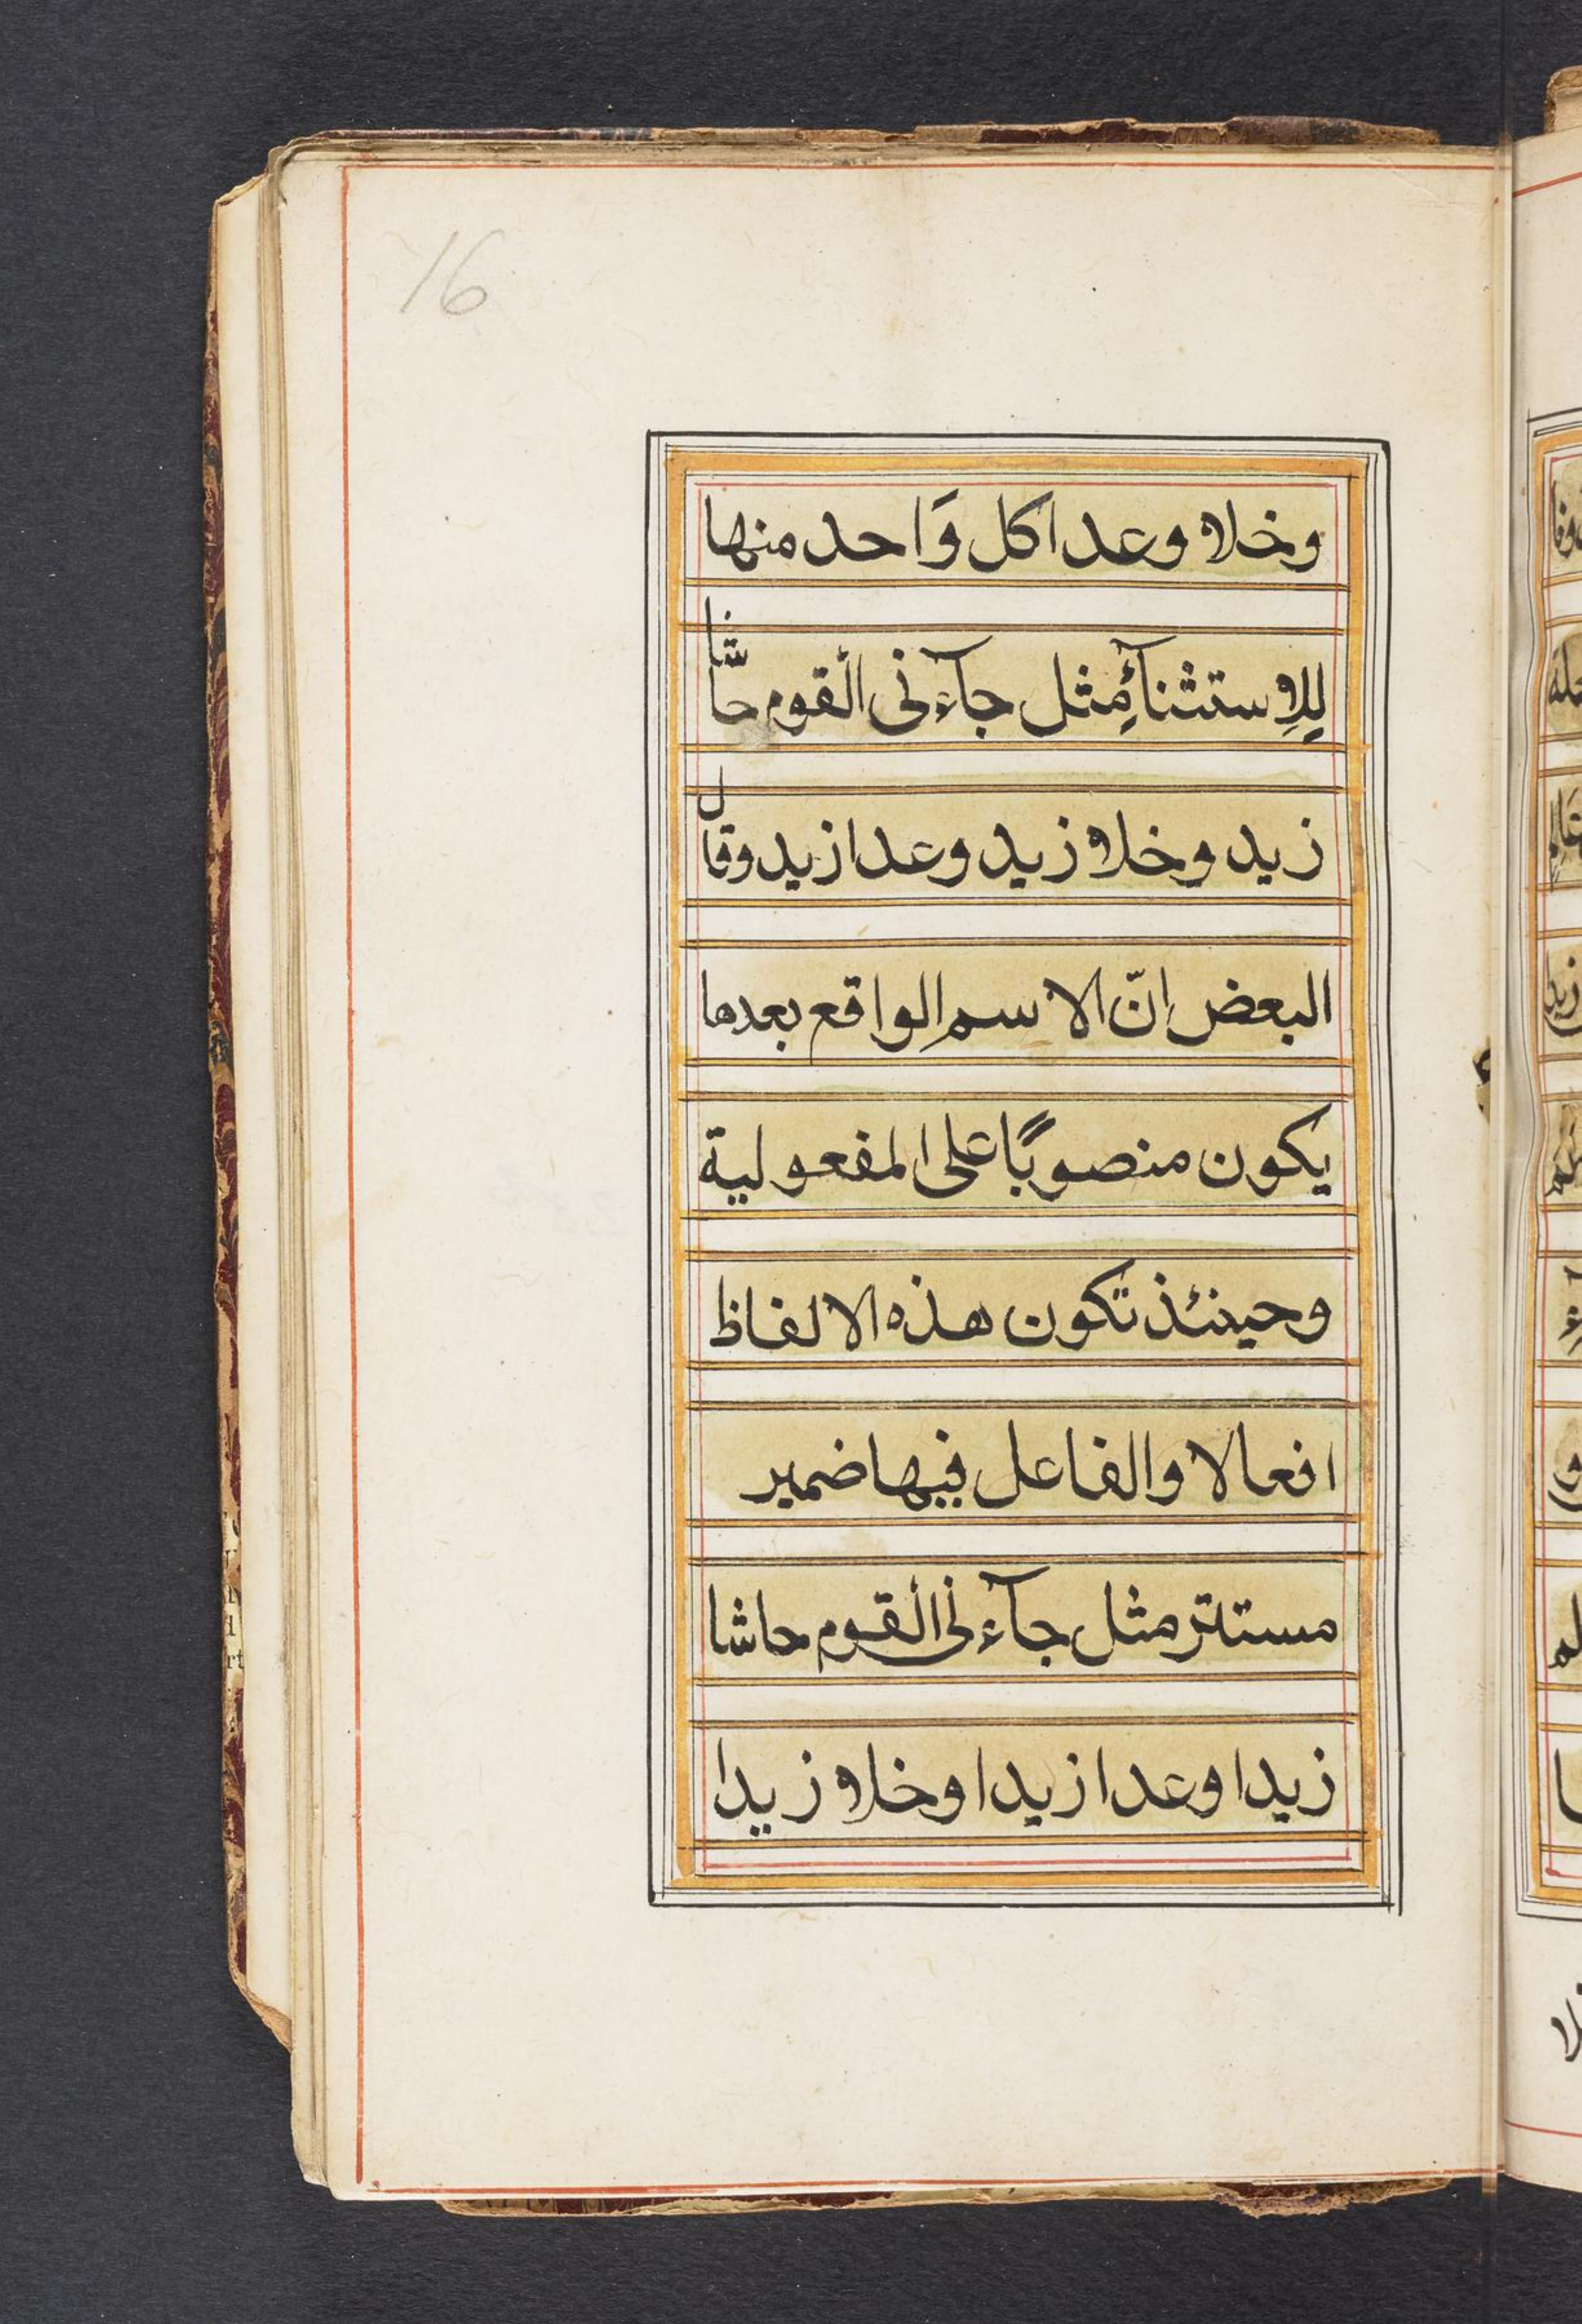 16
وخلا وعدا كل وَاحد منها
لِلاِستثنآءِ مثل جآءنى القوم حاشا
زيد وخلا زيد وعدا زيد وقال
البعض انّ الاسم الواقع بعدها
يكون منصوبًا على المفعولية
وحينئذ تكون هذه الالفاظ
افعالا والفاعل فيها ضمير
مستتر مثل جآءنى القوم حاشا
زيدا وعدا زيدا وخلا زيدا